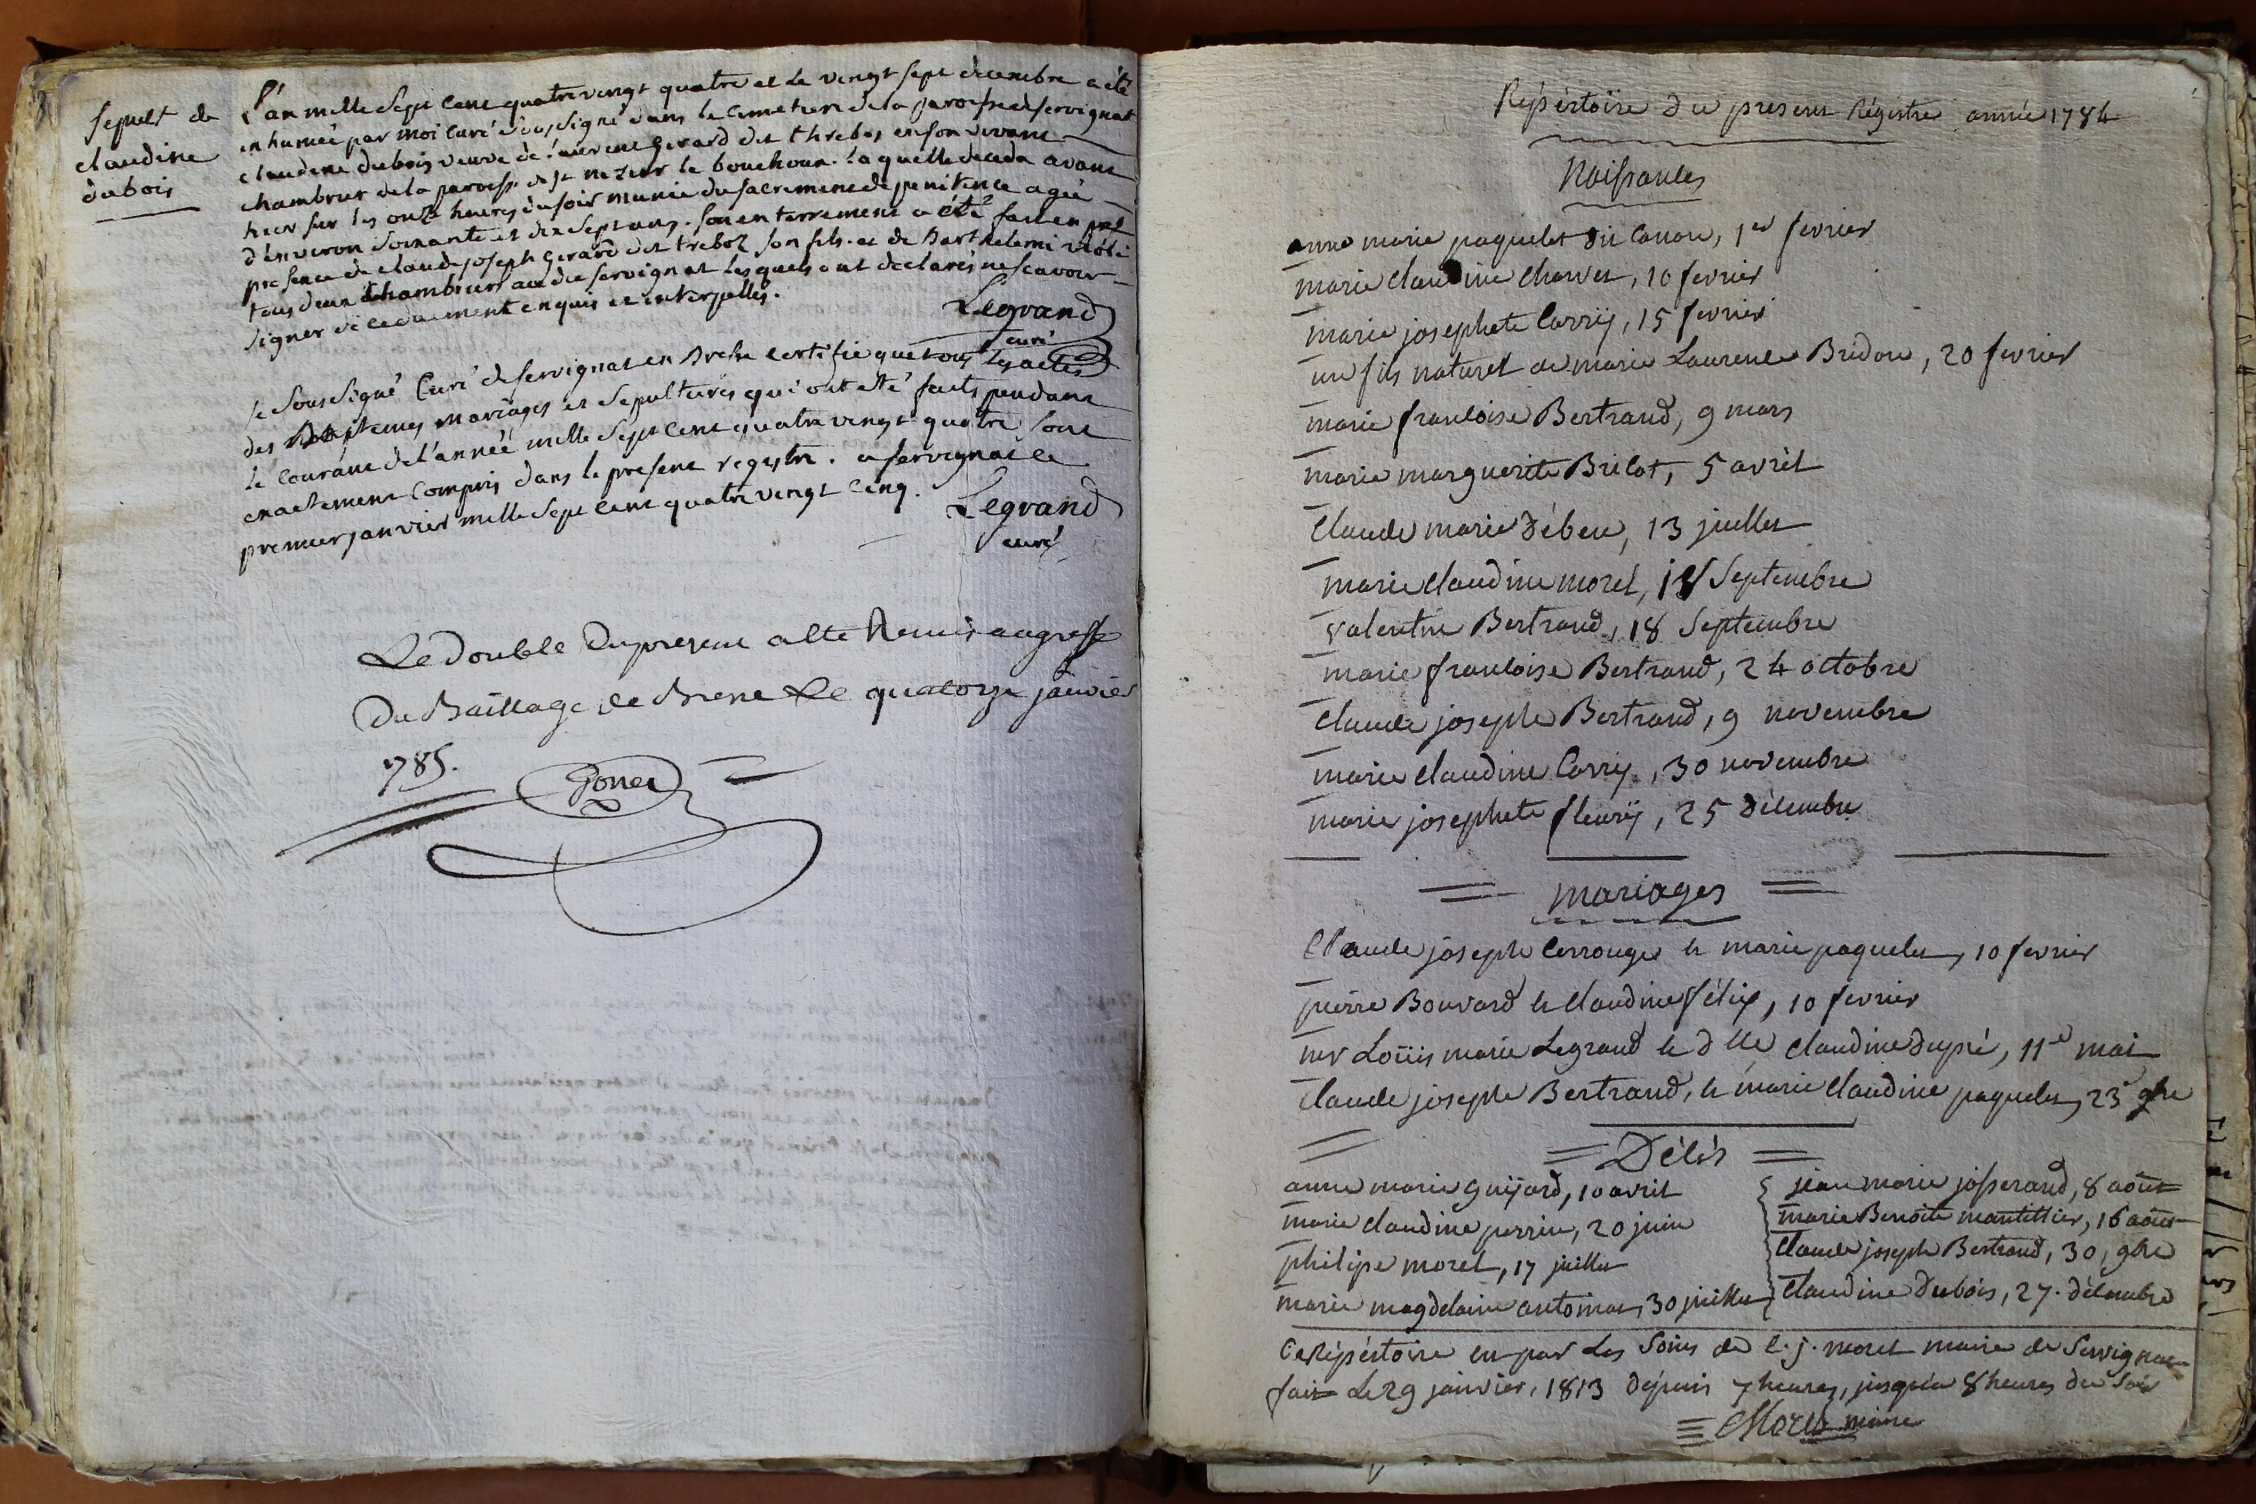 Sepult de
claudine
dubois
L'an mille Sept cent quatre vingt quatre et Le vingt sept decembre a été
inhumée par moi Curé Sous Signé dans le cimetiere de la paroisse de servignat
claudine dubois veuve de laurent Gerard dit threboz en son vivant
chambrier de la paroisse de St nezier le bouchoux. laquelle deceda avant
hier sur les onze heures du soir munie du sacrement de penitence agée
d'environ soixante et dix sept ans. son enterrement a été fait en
presence de claude joseph Gerard dit treboz son fils. et de Barthelemi
tous deux chambriers audit servignat lesquels ont declarés ne scavoir
signer de ce duement enquis et interpellés.
Legrand
curé
Je Sous Signé Curé de servignat en Bresse certifie que tous les actes
des Baptemes mariages et Sepultures qui ont eté faits pendant
le courant de l'année mille Sept cent quatre vingt quatre sont
exactement compris dans le present registre. a servignat le
premier janvier mille sept cent quatre vingt cinq.
Legrand
curé
Le double du present a été Remis au greffe
Du Baillage de Bresse Le quatorze janvier
1785.
Gonet
Répértoire du present Régistre année 1784
Naissances
anne marie paquelet dit Canon, 1er fevrier
marie Claudine Charvet, 10 fevrier
marie josephete Carrÿ, 15 fevrier
un fils naturel de marie Laurence Bridon, 20 fevrier
marie francoise Bertrand, 9 mars
marie marguerite Brilat, 5 avril
Claude marie débeu, 13 juillet
marie claudine morel, 18 Septembre
valentin Bertrand, 18 Septembre
marie francoise Bertrand, 24 octobre
claude joseph Bertrand, 9 novembre
marie claudine Carrÿ, 30 novembre
marie josephete fleurÿ, 25 décembre
mariages
Claude joseph Cerrouge & marie paquelet, 10 fevrier
pierre Bouvard & claudine félix, 10 fevrier
mr Loüis marie Legrand & dlle claudine dupré, 11e mai
Claude joseph Bertrand, & marie claudine paquelet, 23 9bre
Décès
anne marie guÿard, 10 avril
marie claudine perrin, 20 juin
philipe morel, 17 juillet
marie magdelaine antoinat, 30 juillet
jean marie josserand, 8 août
marie Benoite mantillier, 16 août
Claude joseph Bertrand, 30, 9bre
Claudine Dubois, 27. décembre
Ce Répértoire est par les Soins de C. j. morel maire de Servignat
fait Le 29 janvier, 1813 depuis 7 heures, jusqu'a 8 heures du soir
CMorel maire